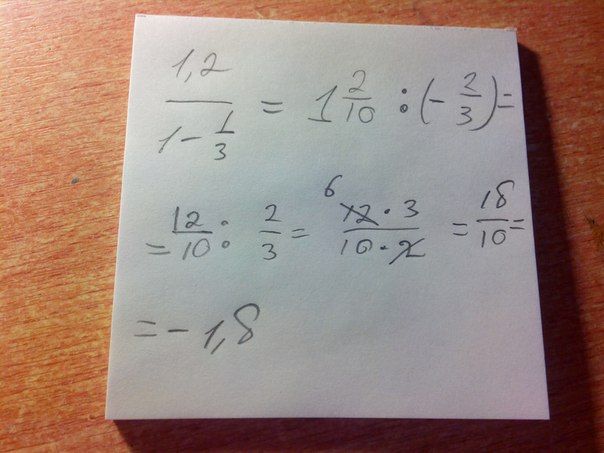 1,2 / (1 - 1/3) = 1 2/10 : (- 2/3) =
= 12/10 : 2/3 = 6 12 · 3 / 10 · 2 = 18/10 =
= - 1,8